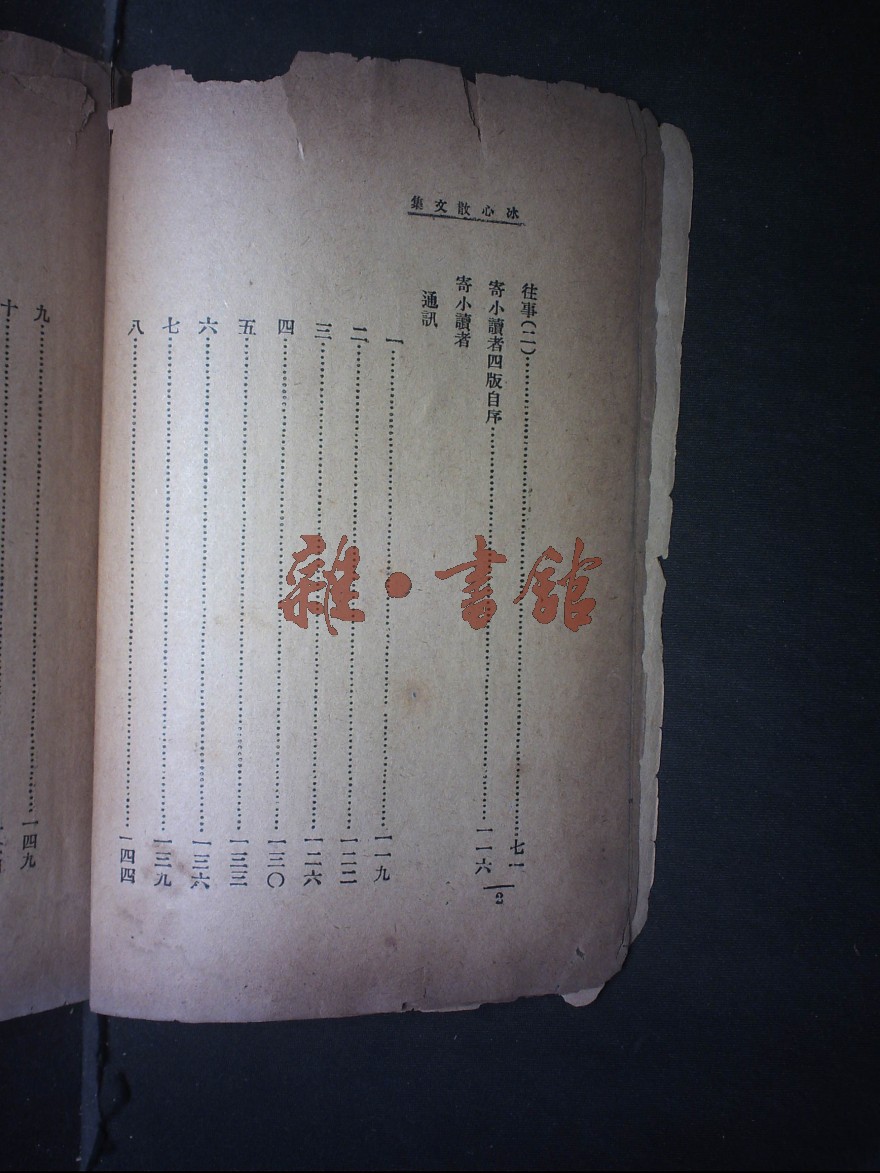 冰心散文集
往事（二）……七一
寄小讀者四版自序……一一六
寄小讀者
通訊
一……一一九
二……一二二
三……一二六
四……一三〇
五……一三三
六……一三六
七……一三九
八……一四四
2
九……一四九
十……
雜·書館